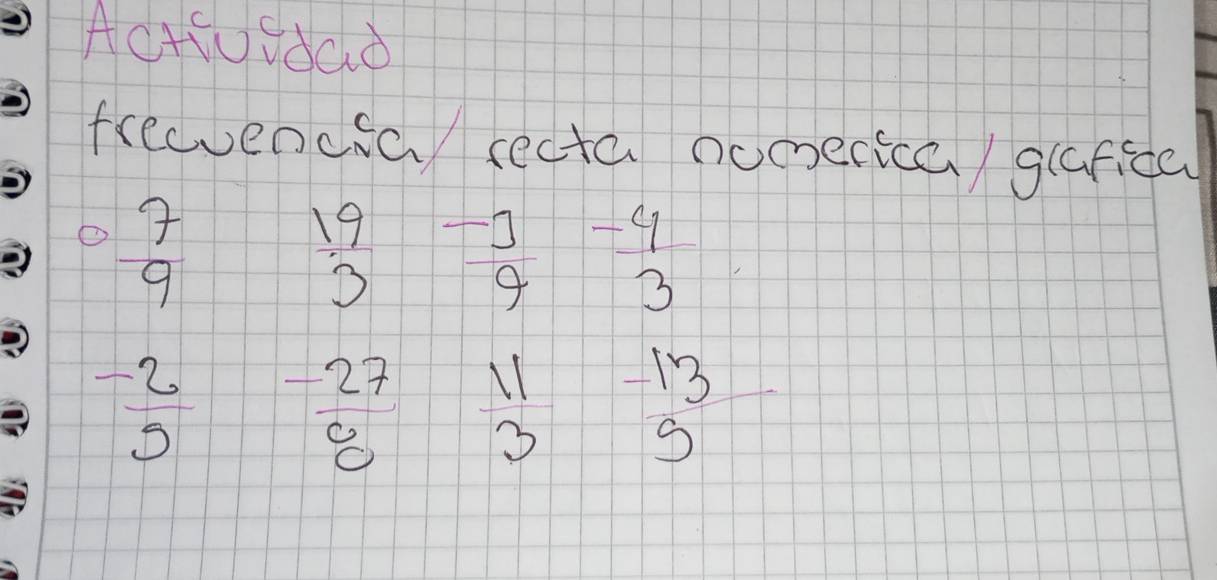 Actividad
frecuencia/ recta numerica/ grafica
7/9 19/3 -5/9 -4/3
-2/5 -27/8 11/3 -13/5